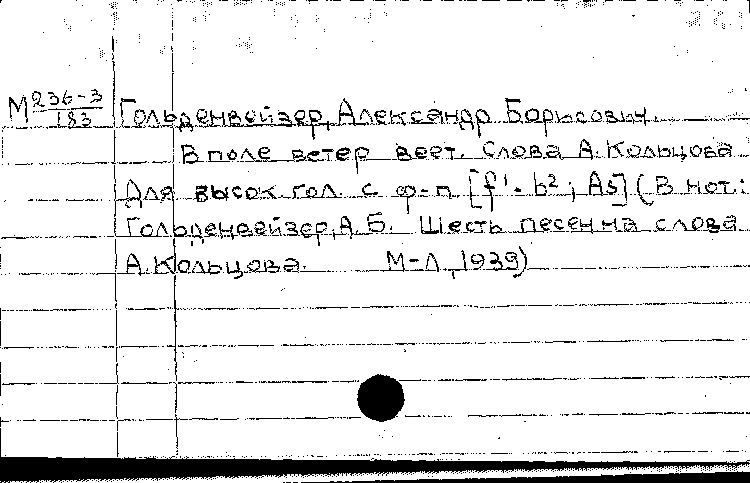 М 236-3/183 Гольденвейзер, Александр Борисович.
В поле ветер веет. Слова А. Кольцова
Для высок гол. с ф-п [f¹-b²; As] (В нот:
Гольденвейзер, А.Б. Шесть песен на слова
А. Кольцова. М-Л, 1939)